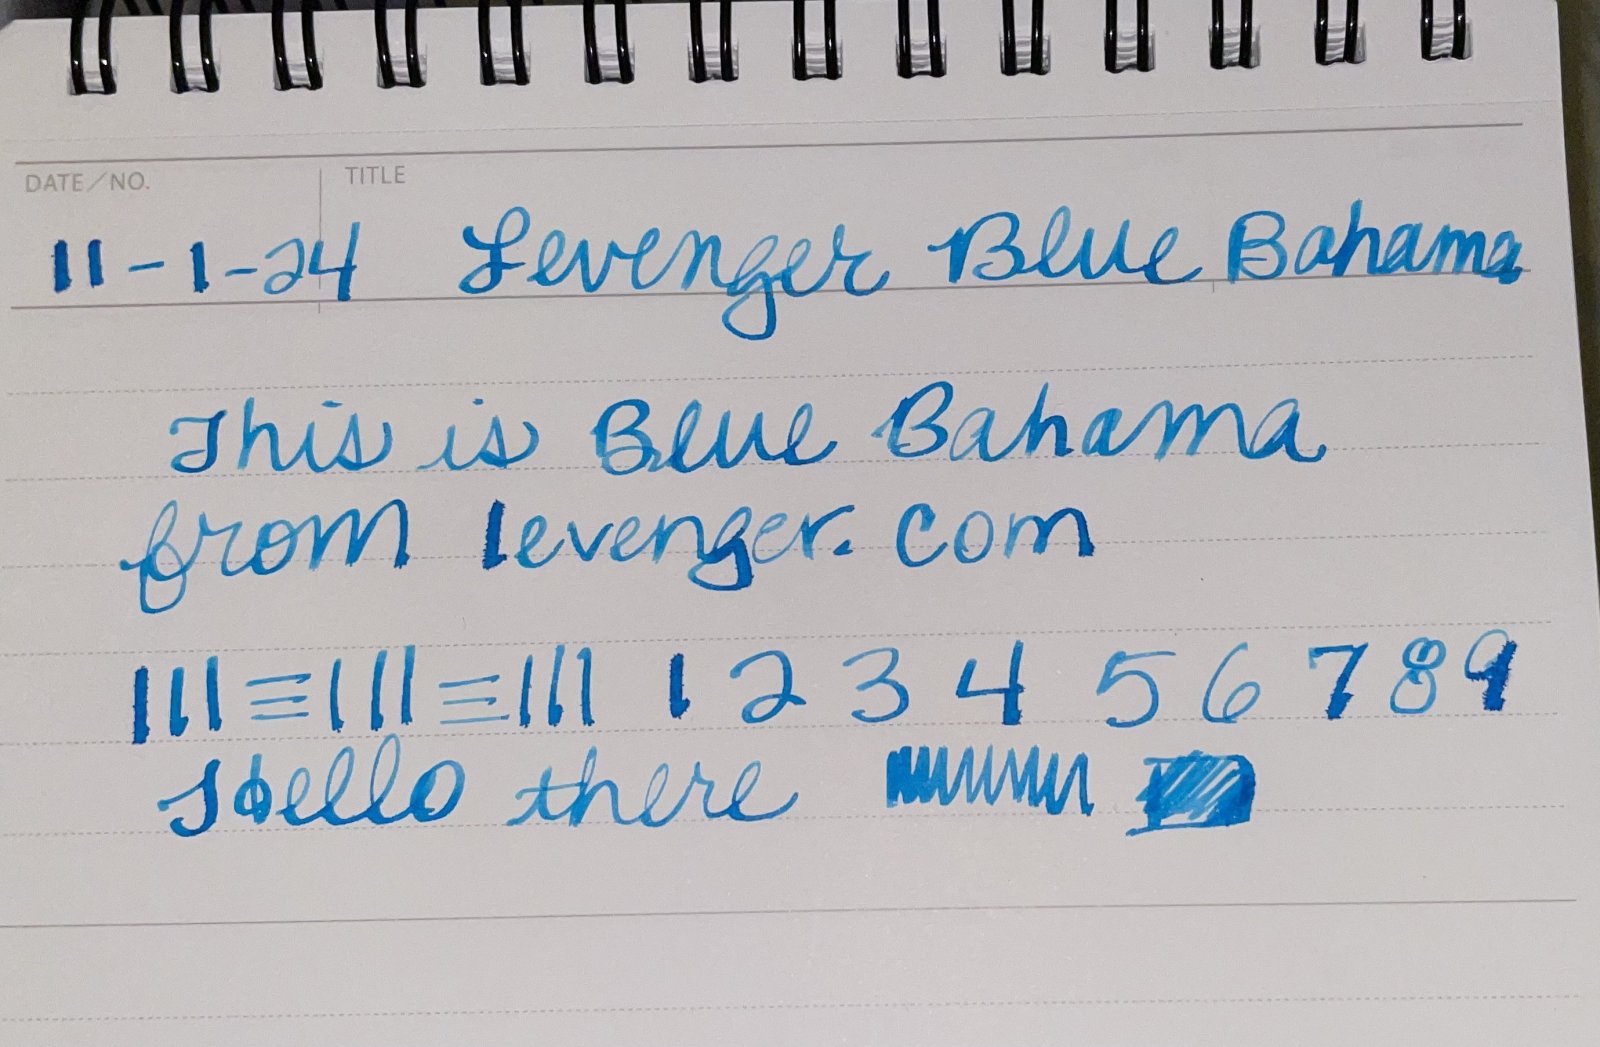 DATE/NO. TITLE
11-1-24 Levenger Blue Bahama
This is Blue Bahama
from levenger.com
111≡111≡111 1 2 3 4 5 6 7 8 9
Hello there